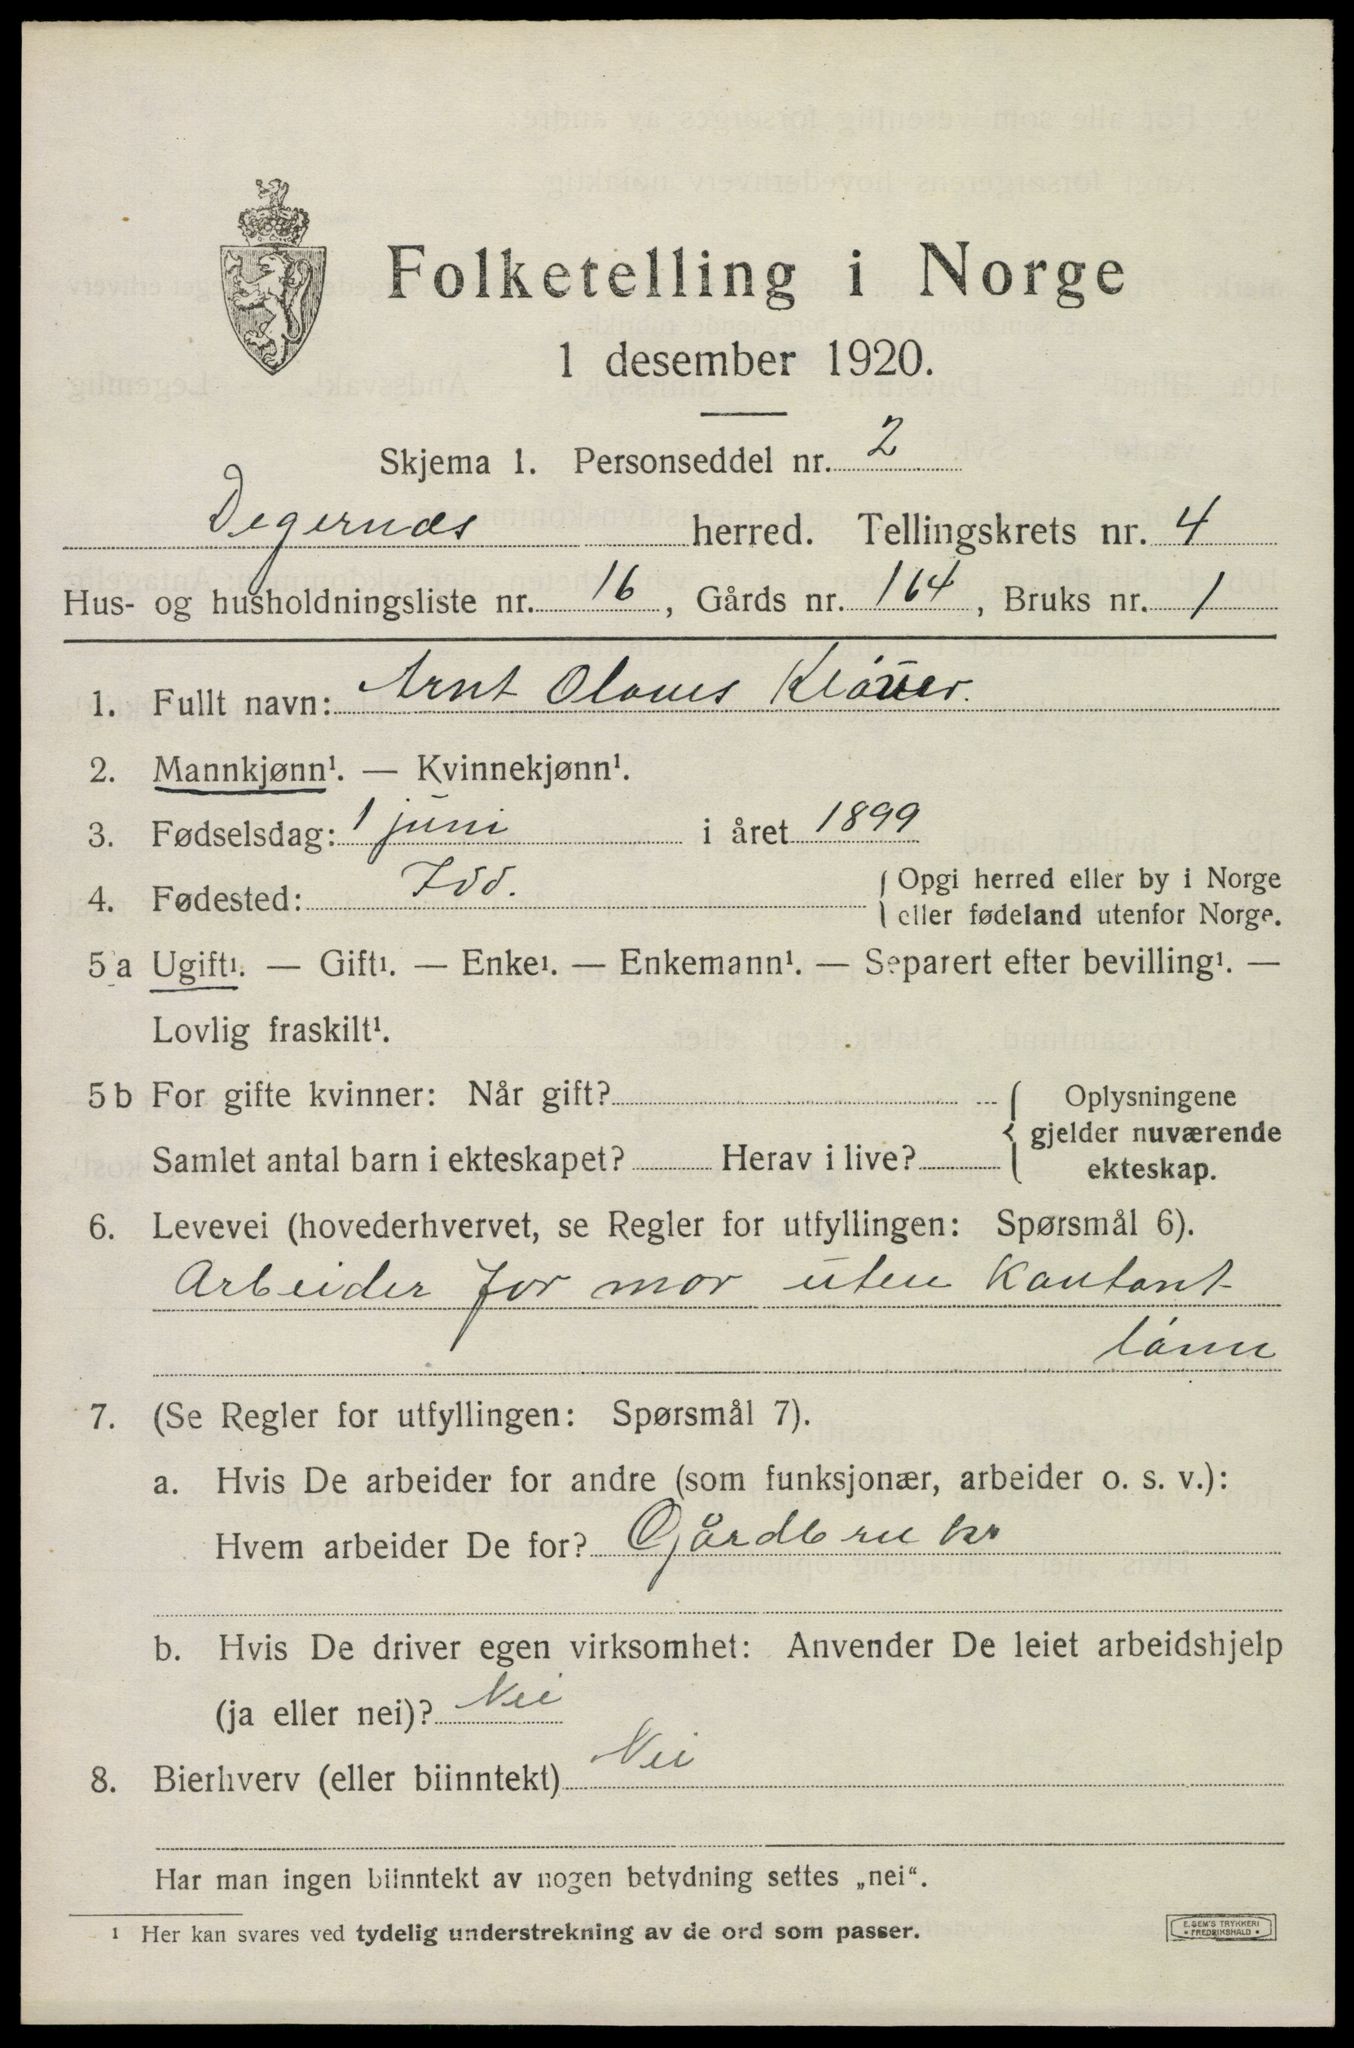 Folketelling i Norge
1 desember 1920.
Skjema 1. Personseddel nr. 2
Degernes herred. Tellingskrets nr. 4
Hus- og husholdningsliste nr. 16, Gårds nr. 164, Bruks nr. 1
1. Fullt navn: Arnt Olaves Kløver.
2. Mannkjønn¹. — Kvinnekjønn¹.
3. Fødselsdag: 1 juni i året 1899
4. Fødested: Idd. Opgi herred eller by i Norge
eller fødeland utenfor Norge.
5 a Ugift¹. — Gift¹. — Enke¹. — Enkemann¹. — Separert efter bevilling¹. —
Lovlig fraskilt¹.
5 b For gifte kvinner: Når gift? Oplysningene
gjelder nuværende
Samlet antal barn i ekteskapet? Herav i live? ekteskap.
6. Levevei (hovederhvervet, se Regler for utfyllingen: Spørsmål 6).
Arbeider for mor uten Kontant
lønn
7. (Se Regler for utfyllingen: Spørsmål 7).
a. Hvis De arbeider for andre (som funksjonær, arbeider o. s. v.):
Hvem arbeider De for? Gårdbruker
b. Hvis De driver egen virksomhet: Anvender De leiet arbeidshjelp
(ja eller nei)? Nei
8. Bierhverv (eller biinntekt) Nei
Har man ingen biinntekt av nogen betydning settes „nei“.
¹ Her kan svares ved tydelig understrekning av de ord som passer.
E. SEM'S TRYKKERI
* FREDRIKSHALD *